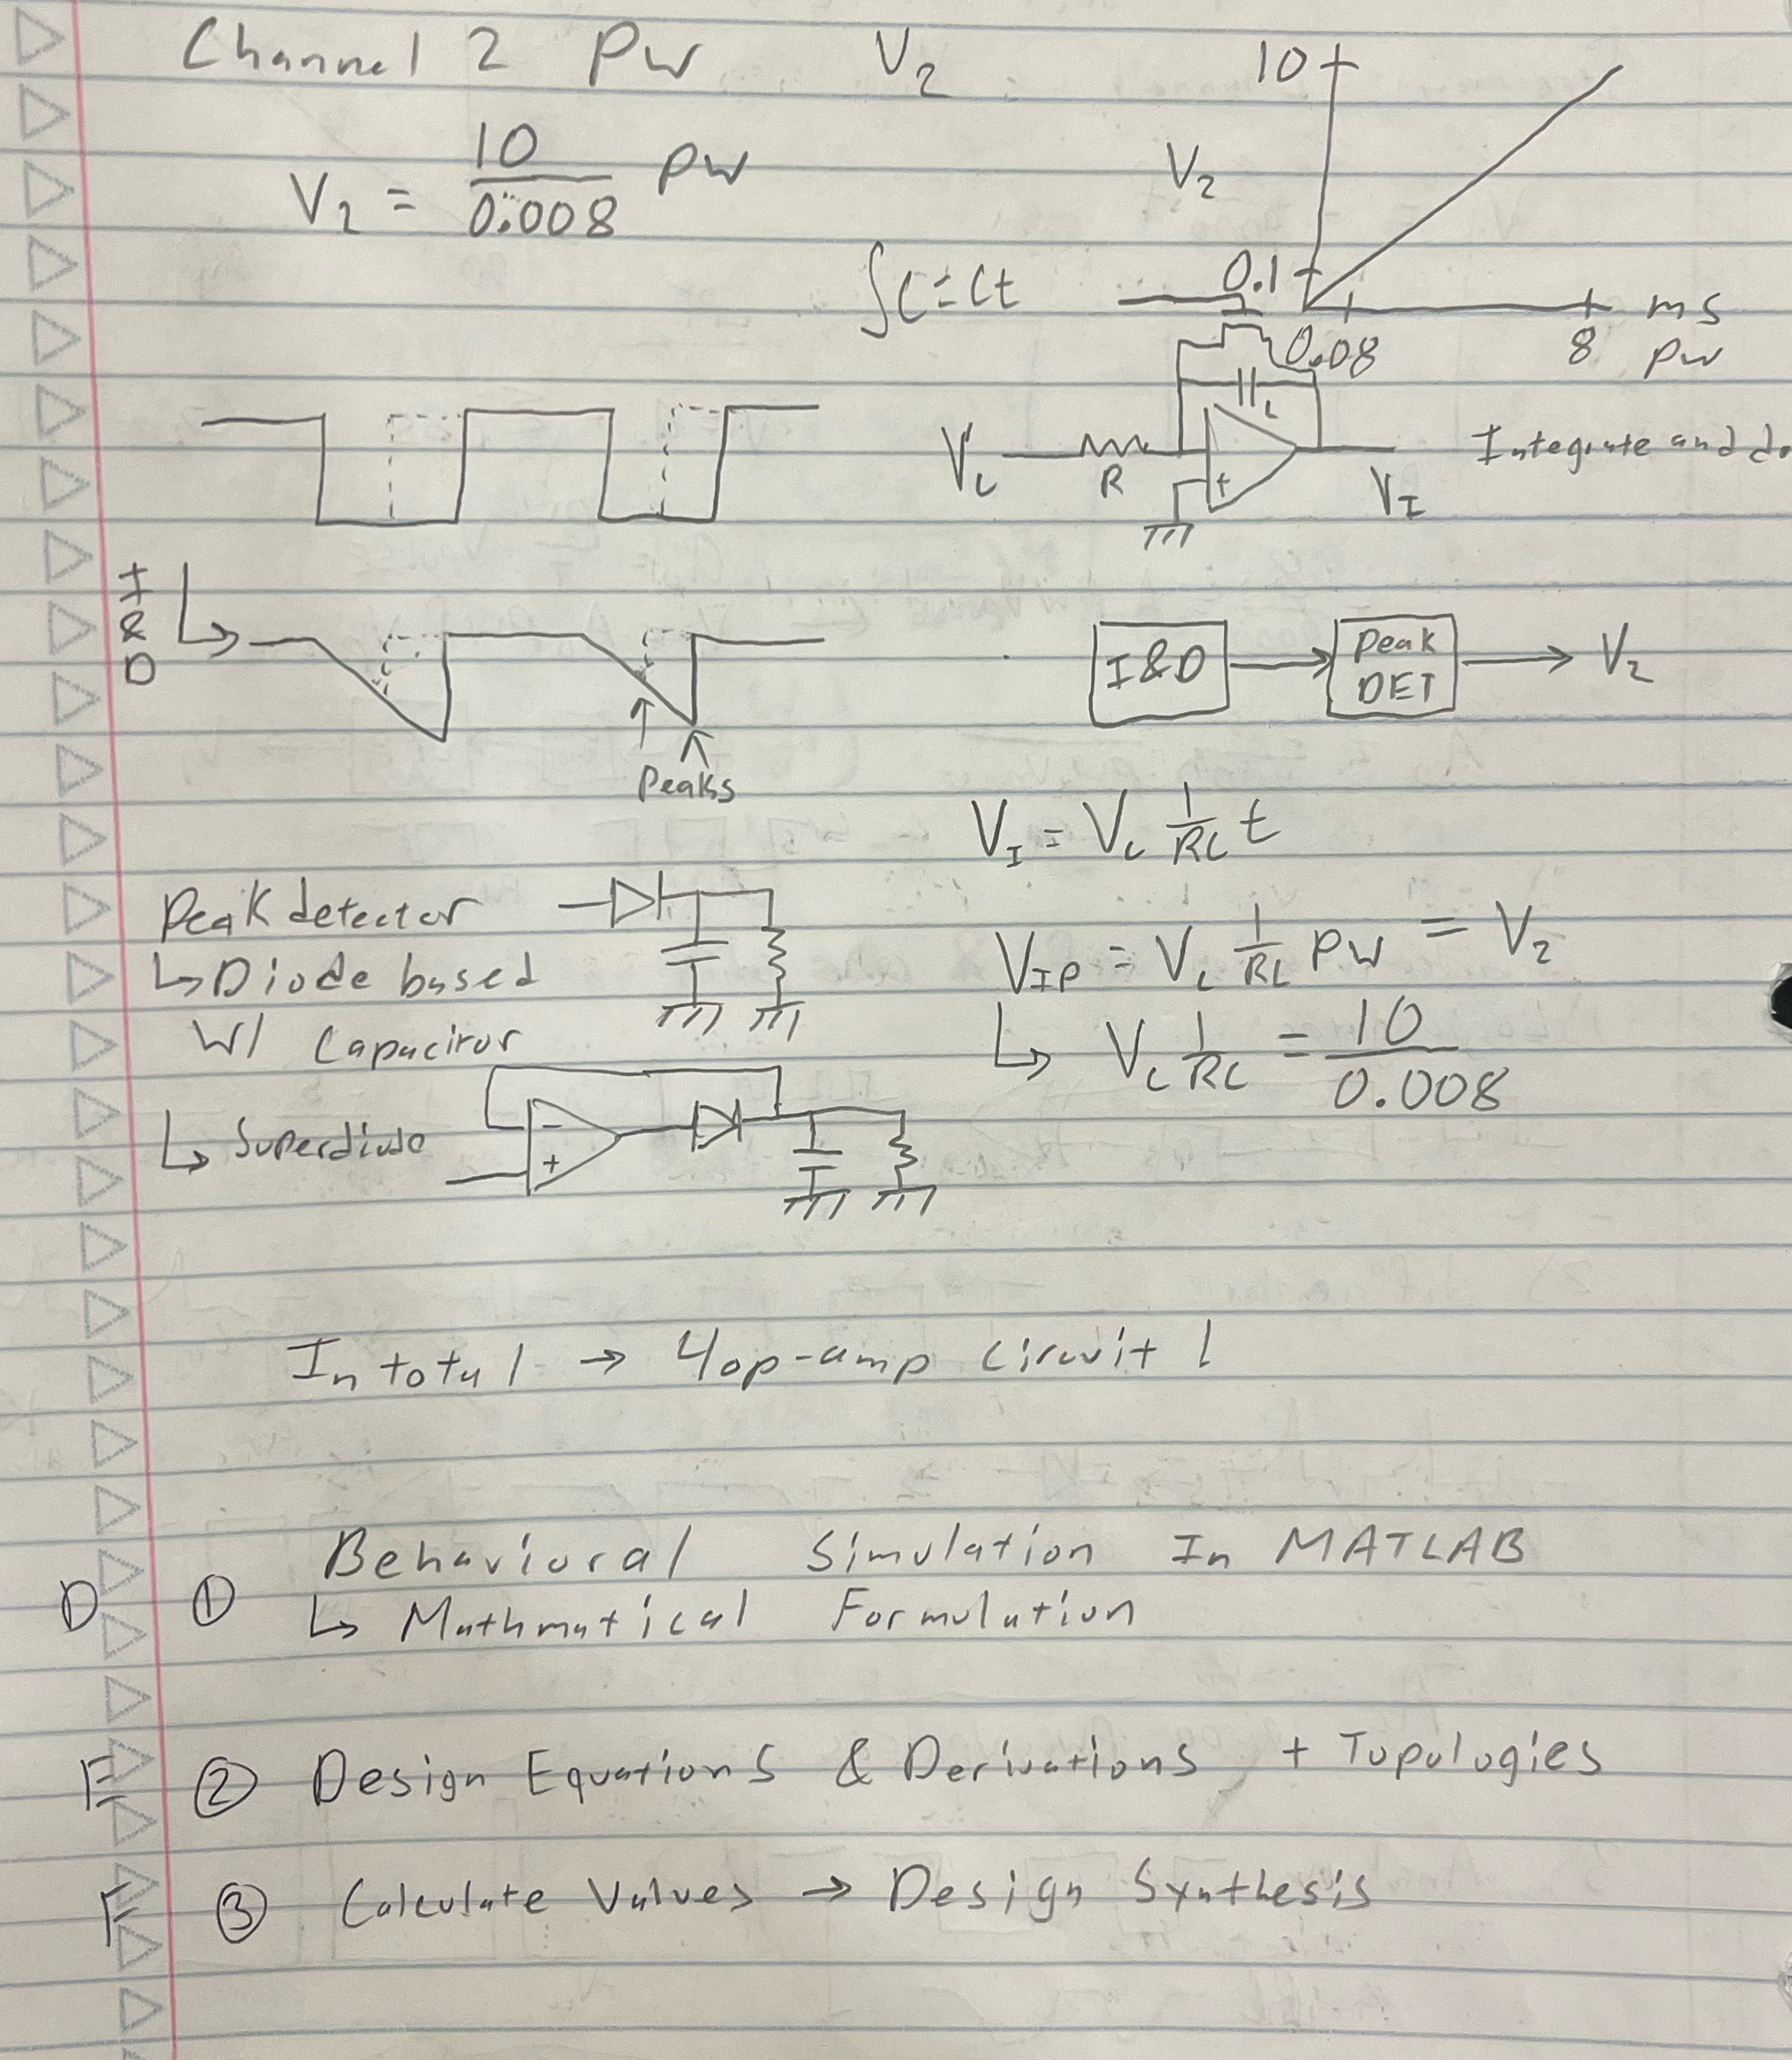 Channel 2 PW V₂
V₂ = 10/0.008 PW
10
V₂
0.1
0.08
8
ms
PW
∫C = Ct
V_C
R
C
+
V_I
Integrate and
I & D
Peaks
I&D
Peak DET
V₂
V_I = V_C 1/RC t
V_IP = V_C 1/RC PW = V₂
↳ V_C 1/RC = 10/0.008
Peak detector
↳ Diode based
W/ Capaciror
↳ Superdiode
-
+
In total → 4 op-amp circuit!
D ① Behavioral Simulation In MATLAB
↳ Mathmatical Formulation
E ② Design Equations & Derivations + Topologies
F ③ Calculate Values → Design Synthesis